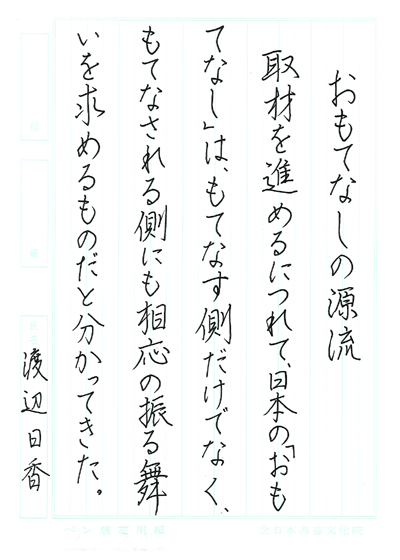 おもてなしの源流
取材を進めるにつれて、日本の「おも
てなし」は、もてなす側だけでなく、
もてなされる側にも相応の振る舞
いを求めるものだと分かってきた。
渡辺日香